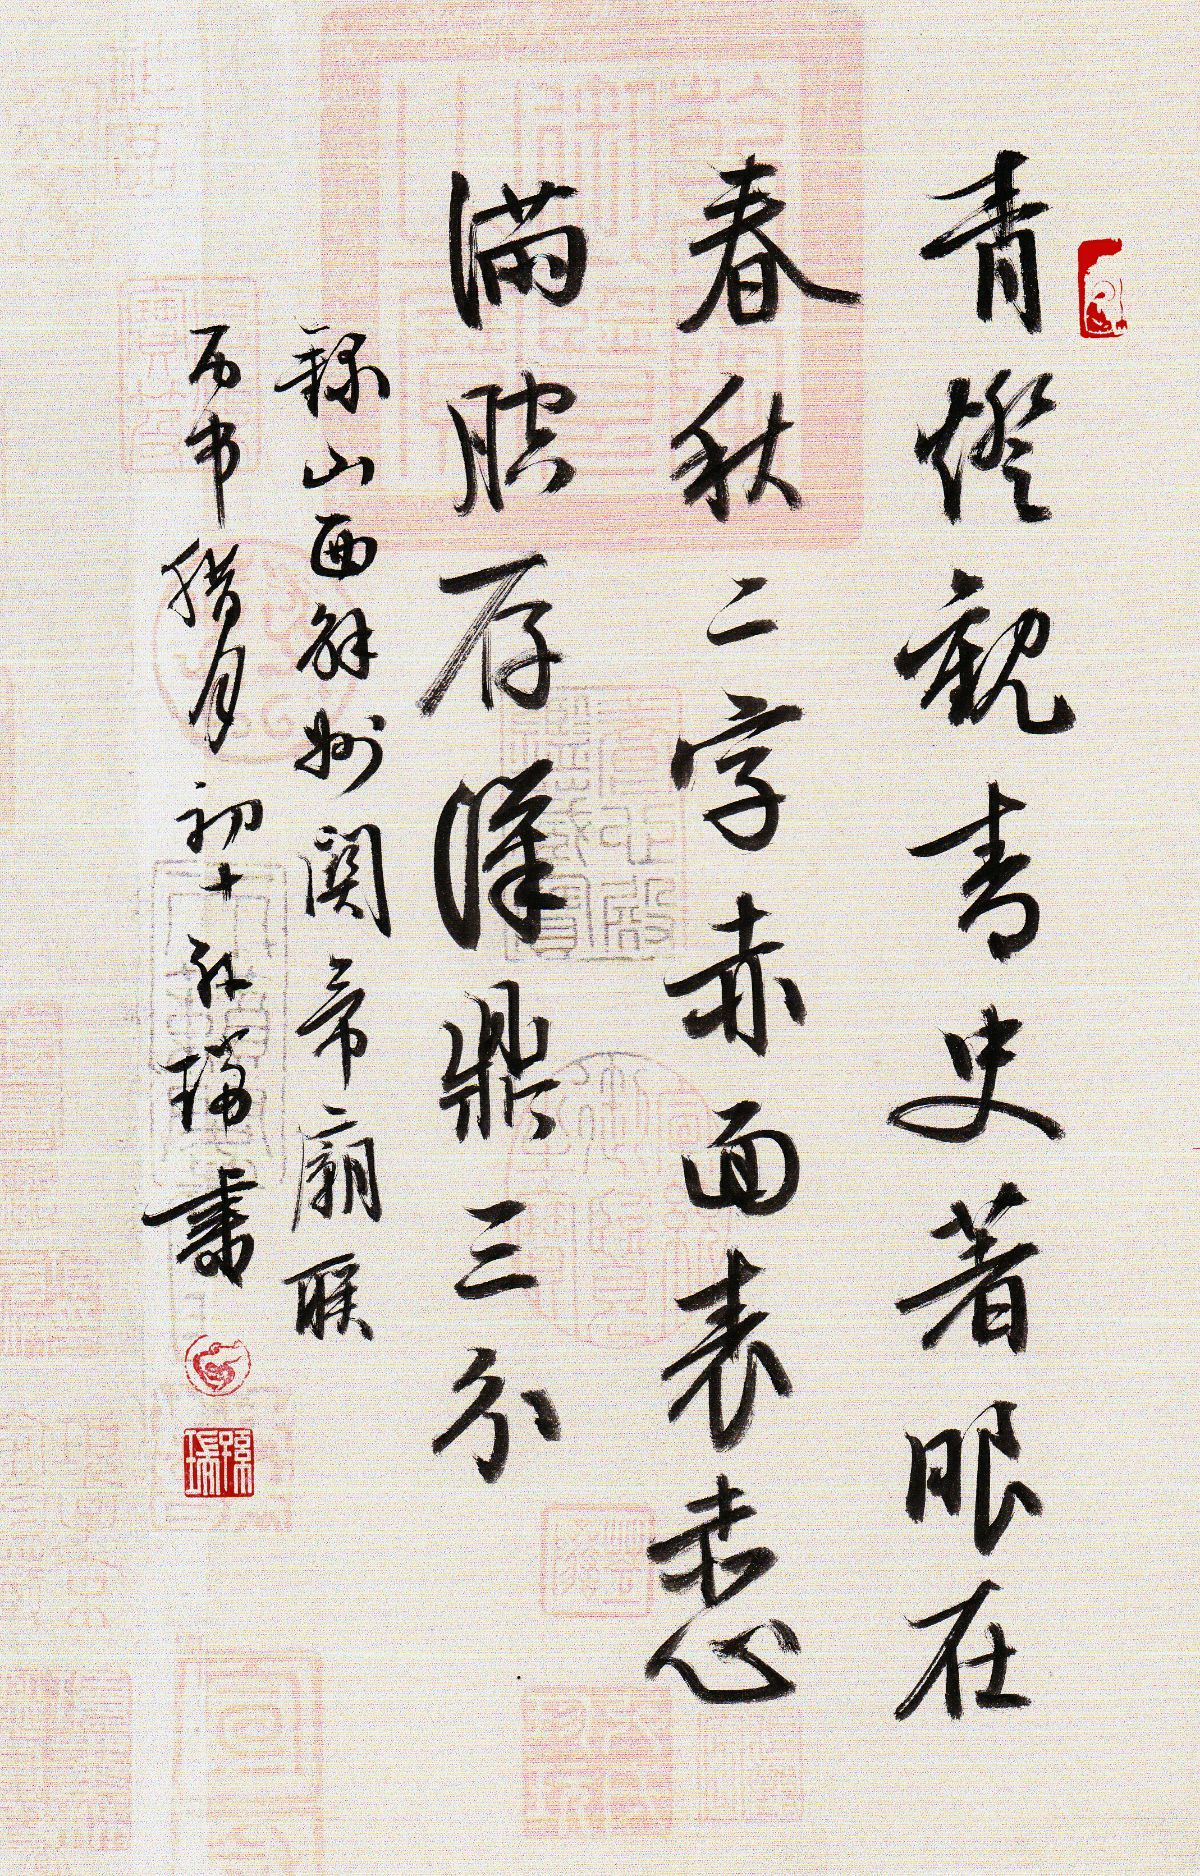 青燈觀青史著眼在
春秋二字赤面表赤心
滿腔存漢鼎三分
録山西解州関帝廟联
丙申腊月初十孙瑞書
孫瑞